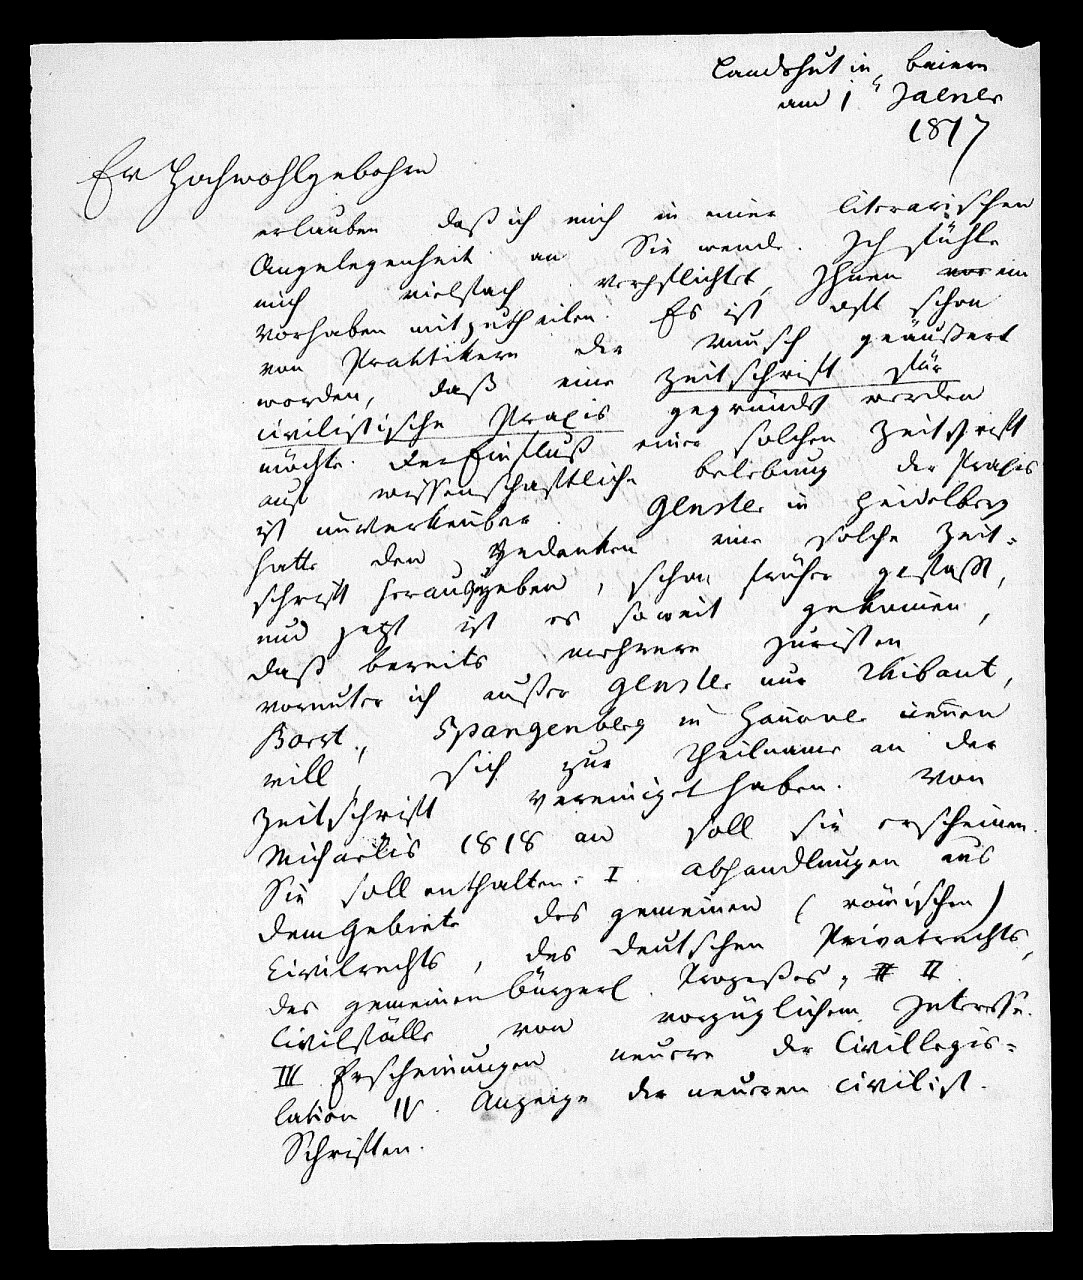 Landshut in Baiern
am 1" Jaener
1817
Ew Hochwohlgebohrn
erlauben daß ich mich in einer literarischen
Angelegenheit an Sie wende. Ich fühle
mich vielfach verpflichtet, Ihnen vor ein
Vorhaben mitzutheilen. Es ist oft schon
von Praktikern der Wunsch geäußert
worden, daß eine Zeitschrift für
civilistische Praxis gegründet werden
möchte. Der Einfluß einer solchen Zeitschrift
auf wissenschaftliche Belebung der Praxis
ist unverkennbar. Genster in Heidelberg
hatte den Gedanken eine solche Zeit=
schrift herauszugeben, schon früher gefaßt,
und jetzt ist es soweit gekommen,
daß bereits mehrere Juristen
worunter ich außer Genster nur Thibaut,
Borst, Spangenberg in Hannover nennen
will, sich zur Theilname an der
Zeitschrift vereiniget haben. Von
Michaelis 1818 an soll sie erscheinen.
Sie soll enthalten: I. Abhandlungen aus
dem Gebiete des gemeinen (römischen)
Civilrechts, des deutschen Privatrechts,
des gemeinen bürgerl. Prozeßes, II
Civilfälle von vorzüglichem Interesse.
III Erscheinungen neuere der Civillegis=
lation IV. Anzeige der neueren civilist.
Schriften.